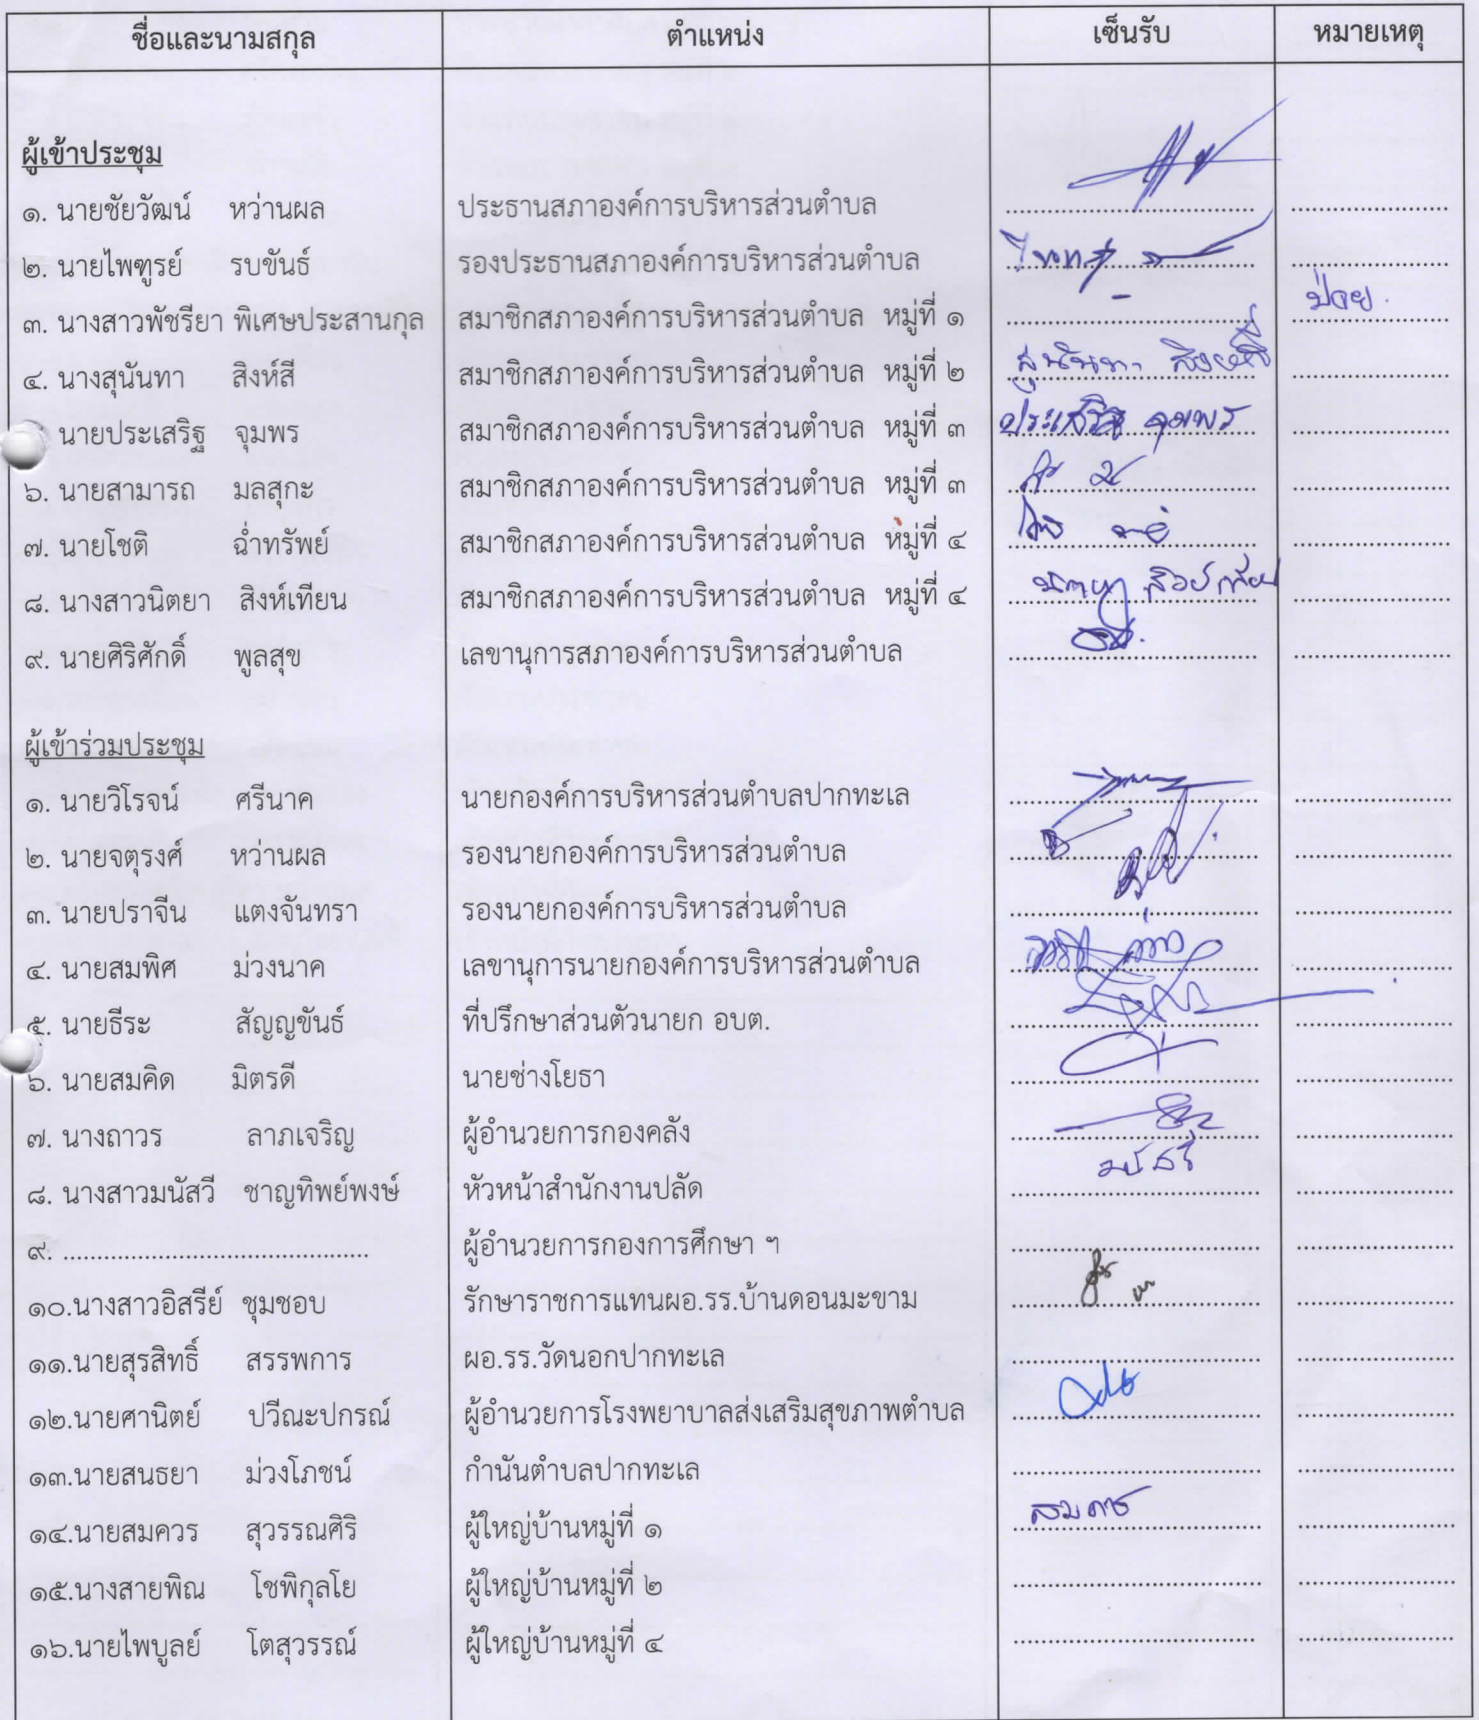 ชื่อและนามสกุล ตำแหน่ง เซ็นรับ หมายเหตุ
ผู้เข้าประชุม
๑. นายชัยวัฒน์ หว่านผล ประธานสภาองค์การบริหารส่วนตำบล
๒. นายไพฑูรย์ รบขันธ์ รองประธานสภาองค์การบริหารส่วนตำบล
๓. นางสาวพัชรียา พิเศษประสานกุล สมาชิกสภาองค์การบริหารส่วนตำบล หมู่ที่ ๑ - ป่วย
๔. นางสุนันทา สิงห์สี สมาชิกสภาองค์การบริหารส่วนตำบล หมู่ที่ ๒ สุนันทา สิงห์สี
นายประเสริฐ จุมพร สมาชิกสภาองค์การบริหารส่วนตำบล หมู่ที่ ๓ ประเสริฐ จุมพร
๖. นายสามารถ มลสุกะ สมาชิกสภาองค์การบริหารส่วนตำบล หมู่ที่ ๓
๗. นายโชติ ฉ่ำทรัพย์ สมาชิกสภาองค์การบริหารส่วนตำบล หมู่ที่ ๔
๘. นางสาวนิตยา สิงห์เทียน สมาชิกสภาองค์การบริหารส่วนตำบล หมู่ที่ ๔ นิตยา สิงห์เทียน
๙. นายศิริศักดิ์ พูลสุข เลขานุการสภาองค์การบริหารส่วนตำบล
ผู้เข้าร่วมประชุม
๑. นายวิโรจน์ ศรีนาค นายกองค์การบริหารส่วนตำบลปากทะเล
๒. นายจตุรงศ์ หว่านผล รองนายกองค์การบริหารส่วนตำบล
๓. นายปราจีน แตงจันทรา รองนายกองค์การบริหารส่วนตำบล
๔. นายสมพิศ ม่วงนาค เลขานุการนายกองค์การบริหารส่วนตำบล
๕. นายธีระ สัญญขันธ์ ที่ปรึกษาส่วนตัวนายก อบต.
๖. นายสมคิด มิตรดี นายช่างโยธา
๗. นางถาวร ลาภเจริญ ผู้อำนวยการกองคลัง
๘. นางสาวมนัสวี ชาญทิพย์พงษ์ หัวหน้าสำนักงานปลัด มนัสวี
๙. ............................................. ผู้อำนวยการกองการศึกษา ฯ
๑๐.นางสาวอิสรีย์ ชุมชอบ รักษาราชการแทนผอ.รร.บ้านดอนมะขาม
๑๑.นายสุรสิทธิ์ สรรพการ ผอ.รร.วัดนอกปากทะเล
๑๒.นายศานิตย์ ปวีณะปกรณ์ ผู้อำนวยการโรงพยาบาลส่งเสริมสุขภาพตำบล
๑๓.นายสนธยา ม่วงโภชน์ กำนันตำบลปากทะเล
๑๔.นายสมควร สุวรรณศิริ ผู้ใหญ่บ้านหมู่ที่ ๑
๑๕.นางสายพิณ โชพิกุลโย ผู้ใหญ่บ้านหมู่ที่ ๒
๑๖.นายไพบูลย์ โตสุวรรณ์ ผู้ใหญ่บ้านหมู่ที่ ๔